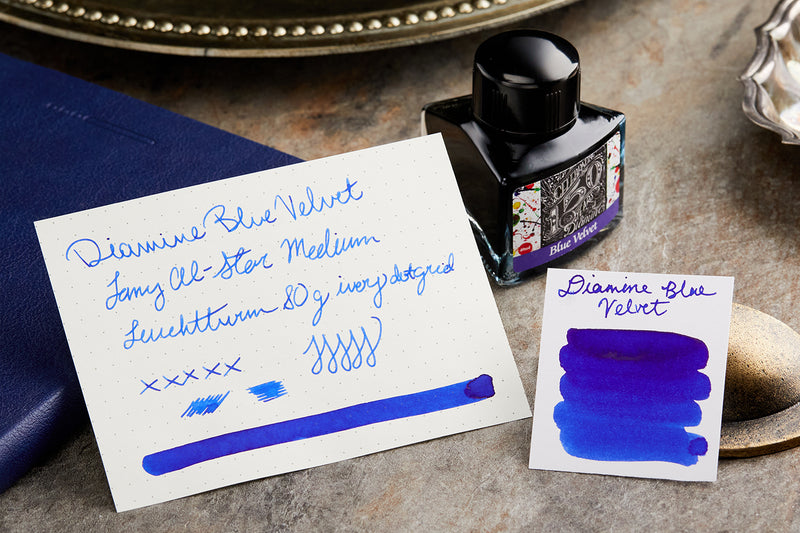 Diamine Blue Velvet
Lamy Al-Star Medium
Leuchtturm 80g ivory dotgrid
xxxxx
150
Years
Diamine
Blue Velvet
Diamine Blue
Velvet